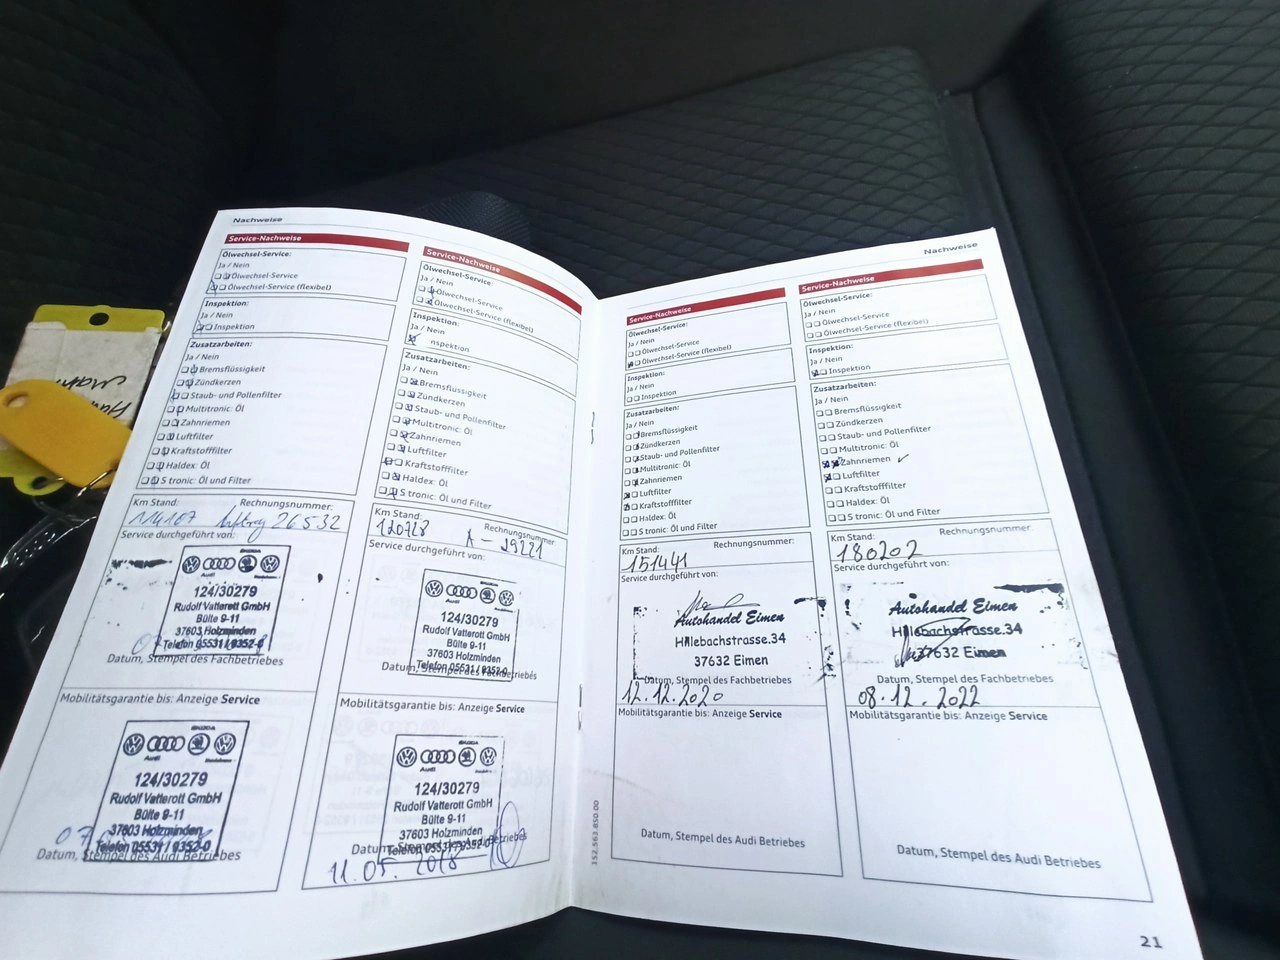 Nachweise
Service-Nachweise
Ölwechsel-Service:
Ja / Nein
Ölwechsel-Service
Ölwechsel-Service (flexibel)
Inspektion:
Ja / Nein
Inspektion
Zusatzarbeiten:
Ja / Nein
Bremsflüssigkeit
Zündkerzen
Staub- und Pollenfilter
Multitronic: Öl
Zahnriemen
Luftfilter
Kraftstofffilter
Haldex: Öl
S tronic: Öl und Filter
Km Stand:
Rechnungsnummer:
114167
26532
Service durchgeführt von:
SKODA
Audi
124/30279
Rudolf Vatterott GmbH
Bülte 9-11
37603 Holzminden
Telefon 05531 / 9352-0
Datum, Stempel des Fachbetriebes
Mobilitätsgarantie bis: Anzeige Service
SKODA
Audi
124/30279
Rudolf Vatterott GmbH
Bülte 9-11
37603 Holzminden
Telefon 05531 / 9352-0
Datum, Stempel des Audi Betriebes
Service-Nachweise
Ölwechsel-Service:
Ja / Nein
Ölwechsel-Service
Ölwechsel-Service (flexibel)
Inspektion:
Ja / Nein
nspektion
Zusatzarbeiten:
Ja / Nein
Bremsflüssigkeit
Zündkerzen
Staub- und Pollenfilter
Multitronic: Öl
Zahnriemen
Luftfilter
Kraftstofffilter
Haldex: Öl
S tronic: Öl und Filter
Km Stand:
Rechnungsnummer:
120728
A - 29221
Service durchgeführt von:
SKODA
Audi
124/30279
Rudolf Vatterott GmbH
Bülte 9-11
37603 Holzminden
Telefon 05531 / 9352-0
Datum, Stempel des Fachbetriebes
Mobilitätsgarantie bis: Anzeige Service
SKODA
Audi
124/30279
Rudolf Vatterott GmbH
Bülte 9-11
37603 Holzminden
Telefon 05531 / 9352-0
Datum, Stempel des Audi Betriebes
11.05.2018
Nachweise
Service-Nachweise
Ölwechsel-Service:
Ja / Nein
Ölwechsel-Service
Ölwechsel-Service (flexibel)
Inspektion:
Ja / Nein
Inspektion
Zusatzarbeiten:
Ja / Nein
Bremsflüssigkeit
Zündkerzen
Staub- und Pollenfilter
Multitronic: Öl
Zahnriemen
Luftfilter
Kraftstofffilter
Haldex: Öl
S tronic: Öl und Filter
Km Stand:
Rechnungsnummer:
151441
Service durchgeführt von:
Autohandel Eimen
Hillebachstrasse.34
37632 Eimen
Datum, Stempel des Fachbetriebes
12.12.2020
Mobilitätsgarantie bis: Anzeige Service
Datum, Stempel des Audi Betriebes
152.563.850.00
Service-Nachweise
Ölwechsel-Service:
Ja / Nein
Ölwechsel-Service
Ölwechsel-Service (flexibel)
Inspektion:
Ja / Nein
Inspektion
Zusatzarbeiten:
Ja / Nein
Bremsflüssigkeit
Zündkerzen
Staub- und Pollenfilter
Multitronic: Öl
Zahnriemen
Luftfilter
Kraftstofffilter
Haldex: Öl
S tronic: Öl und Filter
Km Stand:
Rechnungsnummer:
180202
Service durchgeführt von:
Autohandel Eimen
Hillebachstrasse.34
37632 Eimen
Datum, Stempel des Fachbetriebes
08.12.2022
Mobilitätsgarantie bis: Anzeige Service
Datum, Stempel des Audi Betriebes
21